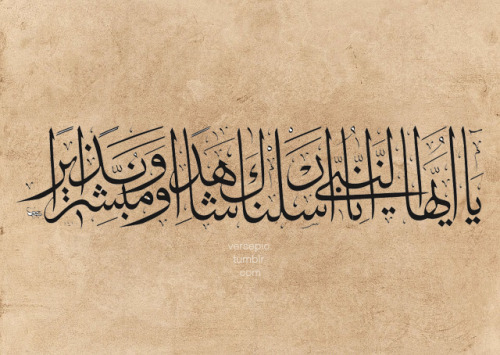 يَا أَيُّهَا النَّبِيُّ إِنَّا أَرْسَلْنَاكَ شَاهِدًا وَمُبَشِّرًا وَنَذِيرًا
versepic
tumblr
com